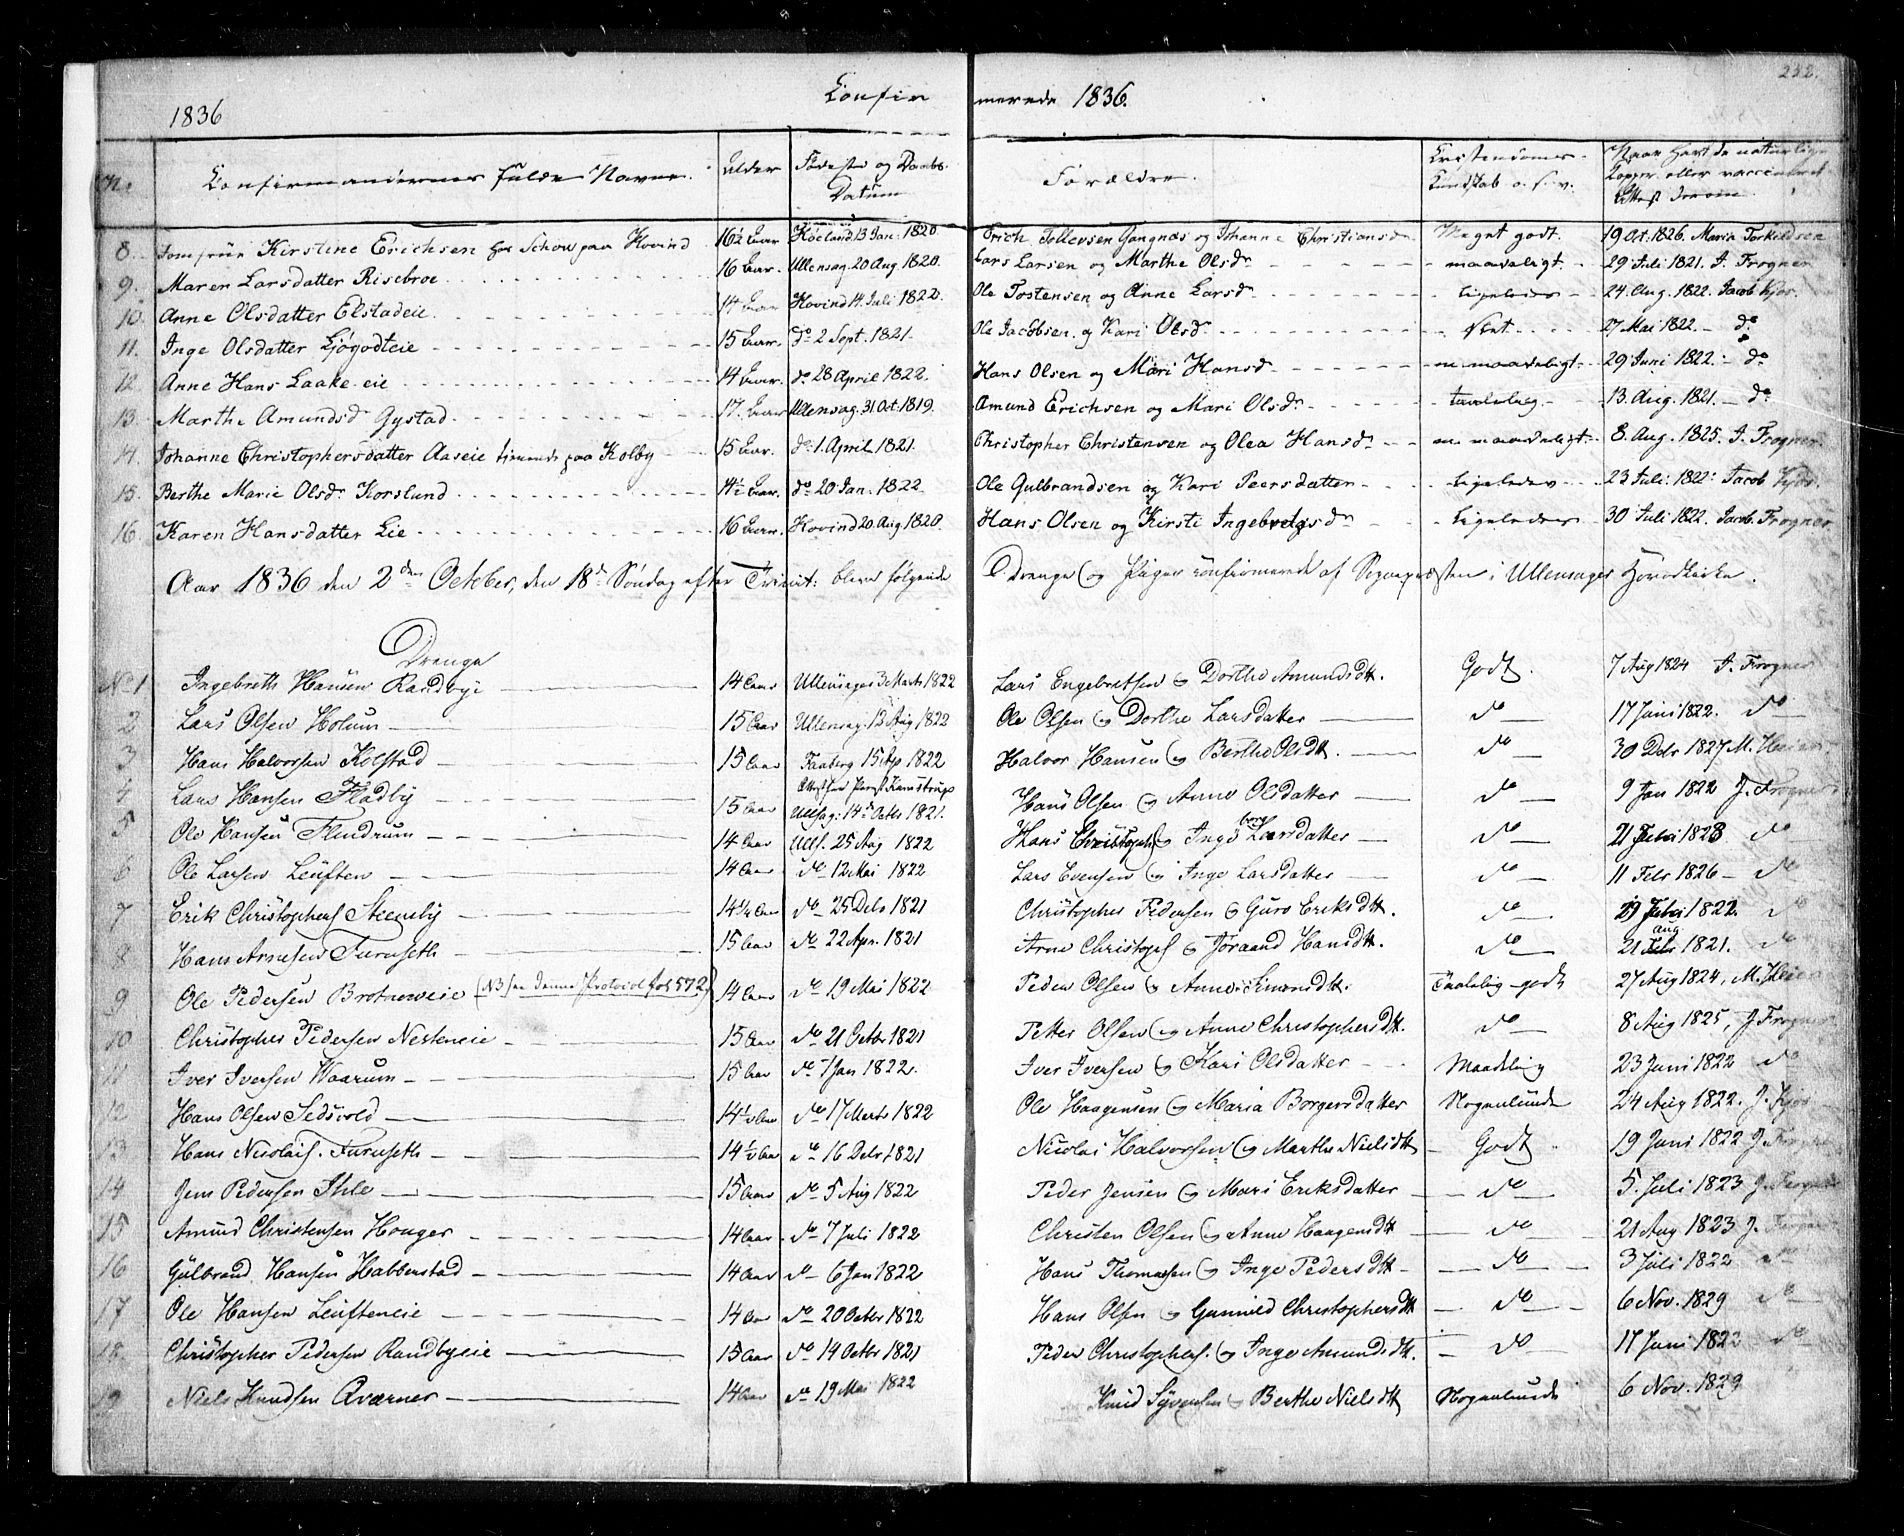 232.
1836 Confirmerede 1836.
No. Confirmandernes fulde Navne. Alder Fødested og Daabs Datum Forældre. Christendoms-Kundskab o. s. v. Naar havt de naturlige Kopper eller vaccineret Attest derom
8. Jomfrue Kirstine Erichsen hos Schou paa Hovind 16½ Aar Høeland 13 Jan. 1820 Erich Tollevsen Gangnæs og Johanne Christiansd. Meget godt. 19 Oct. 1826. Maria Torkildsen
9. Maren Larsdatter Risebroe 16 Aar. Ullensag. 20 Aug. 1820. Lars Larsen og Marthe Olsdr maadeligt. 29 Juli 1821. J. Frogner
10. Anne Olsdatter Elstadeie. 14 Aar Hovind 14. Juli 1822. Ole Tostensen og Anne Larsd. Ligeledes 24. Aug. 1822. Jacob Kjos.
11. Inge Olsdatter Ljøgodteie 15 Aar. do 2 Sept. 1821. Ole Jacobsen og Kari Olsd. slet 27 Mai 1822. - do
12. Anne Hans Laake eie 14 Aar. do 28 April 1822. Hans Olsen og Mari Hansd. maadeligt 29 Juni 1822. - do
13. Marthe Amundsd Gystad. 17. Aar Ullensag. 31 Oct. 1819. Amund Erichsen og Mari Olsdr taalelig 13. Aug. 1821. - do
14. Johanne Christophersdatter Aaseie tienende paa Kolby 15 Aar. do 1. April 1821. Christopher Christensen og Olea Hansdr maadeligt 8. Aug. 1825. J. Frogner
15. Berthe Marie Olsdr Korslund 14½ Aar. do 20 Jan. 1822. Ole Gulbrandsen og Kari Peersdatter Ligeledes 23 Juli 1822. Jacob Kjos.
16. Karen Hansdatter Lie 16 Aar. Hovind 20. Aug. 1820. Hans Olsen og Kirsti Ingebretgsdr Ligeledes 30 Juli 1822. Jacob. Frogner
Aar 1836 den 2den October, den 18de Søndag efter Trinit: bleve følgende Drenge og Piger confirmerede af Sognepræsten i Ullensager Hovedkirke.
Drenge
No 1 Ingebreth Hansen Randbye 14 Aar Ullensager 3 Marts 1822 Lars Engebretsen og Dorthe Amundsdtt. Godt. 7 Aug 1824 J. Frogner
2 Lars Olsen Holum 15 Aar Ullensag. 13 Aug 1822 Ole Olsen og Dorthe Larsdatter do 17 Juni 1822. do
3 Hans Halvorsen Kolstad 15 Aar Faaberg 15 Ap 1822 Halvor Hansen og Berthe Olsdtt. do 30 Debr 1827 M. Heier
4 Lars Hansen Fladby 15 Aar Ullsag: 14de Octbr 1821. Hans Olsen og Anne Olsdatter do 9 Jan 1822 J. Frogner
5 Ole Hansen Flindrum 14 Aar Ulls. 25 Aug 1822 Hans Christoph og Ingeborg Larsdatter do 21 1823 do
6 Ole Larsen Leuften 14 Aar do 12 Mai 1822 Lars Evensen og Inge Larsdatter do 11 Febr 1826 do
7 Erik Christophers Steenby 14½ Aar do 25 Debr 1821 Christopher Pedersen og Guro Eriksdtt. do 29 1822. do
8 Hans Arnesen Furuseth 15 Aar do 22 Apr. 1821 Arne Christophs og Joraand Hansdtt. do 21 aug 1821. do
9 Ole Pedersen Brotneveie (NB see denne Protocol fol: 572) 14 Aar do 19 Mai 1822 Peder Olsen og Anne Simensdtt. Taalelig godt 27 Aug 1824, M. Heier
10 Christopher Pedersen Nesteneie 15 Aar do 21 Octbr 1821 Petter Olsen og Anne Christophersdtt. do 8 Aug 1825, J. Frogner
11 Iver Iversen Waarum 15 Aar do 7 Jan 1822. Iver Iversen og Kari Olsdatter Maadelig 23 Juni 1822 do
12 Hans Olsen Sedsvold 14½ Aar do 17 Marts 1822 Ole Haagensen og Maria Borgersdatter Nogenlunde 24 Aug 1822. J. Kjos
13 Hans Nicolais. Furuseth 14½ Aar do 16 Debr 1821 Nicolai Halvorsen og Marthe Nielsdtt Godt 19 Juni 1822 J. Frogner
14 Jens Pedersen Ihle 15 Aar do 5 Aug 1822 Peder Jensen og Mari Eriksdatter do 5. Juli 1823 J. Frogner
15 Amund Christensen Houger 14 Aar do 7 Juli 1822 Christen Olsen og Anne Haagensdtt do 21 Aug 1823 J. Frogner
16 Gulbrand Hansen Habberstad 14 Aar do 6 Jan 1822 Hans Thomassen og Inge Pedersdtt do 3 Juli 1822 do
17 Ole Hansen Leufteneie 14 Aar do 20 Octbr 1822 Hans Olsen og Gunnild Christophersdtt do 6 Nov. 1829 do
18 Christopher Pedersen Randbyeie 15 Aar do 14 Octbr 1821 Peder Christophers. og Inge Amundsdtt. do 17 Juni 1822 do
19 Niels Knudsen Qværner 14 Aar do 19 Mai 1822 Knud Syversen og Berthe Nielsdtt Nogenlunde 6 Nov. 1829